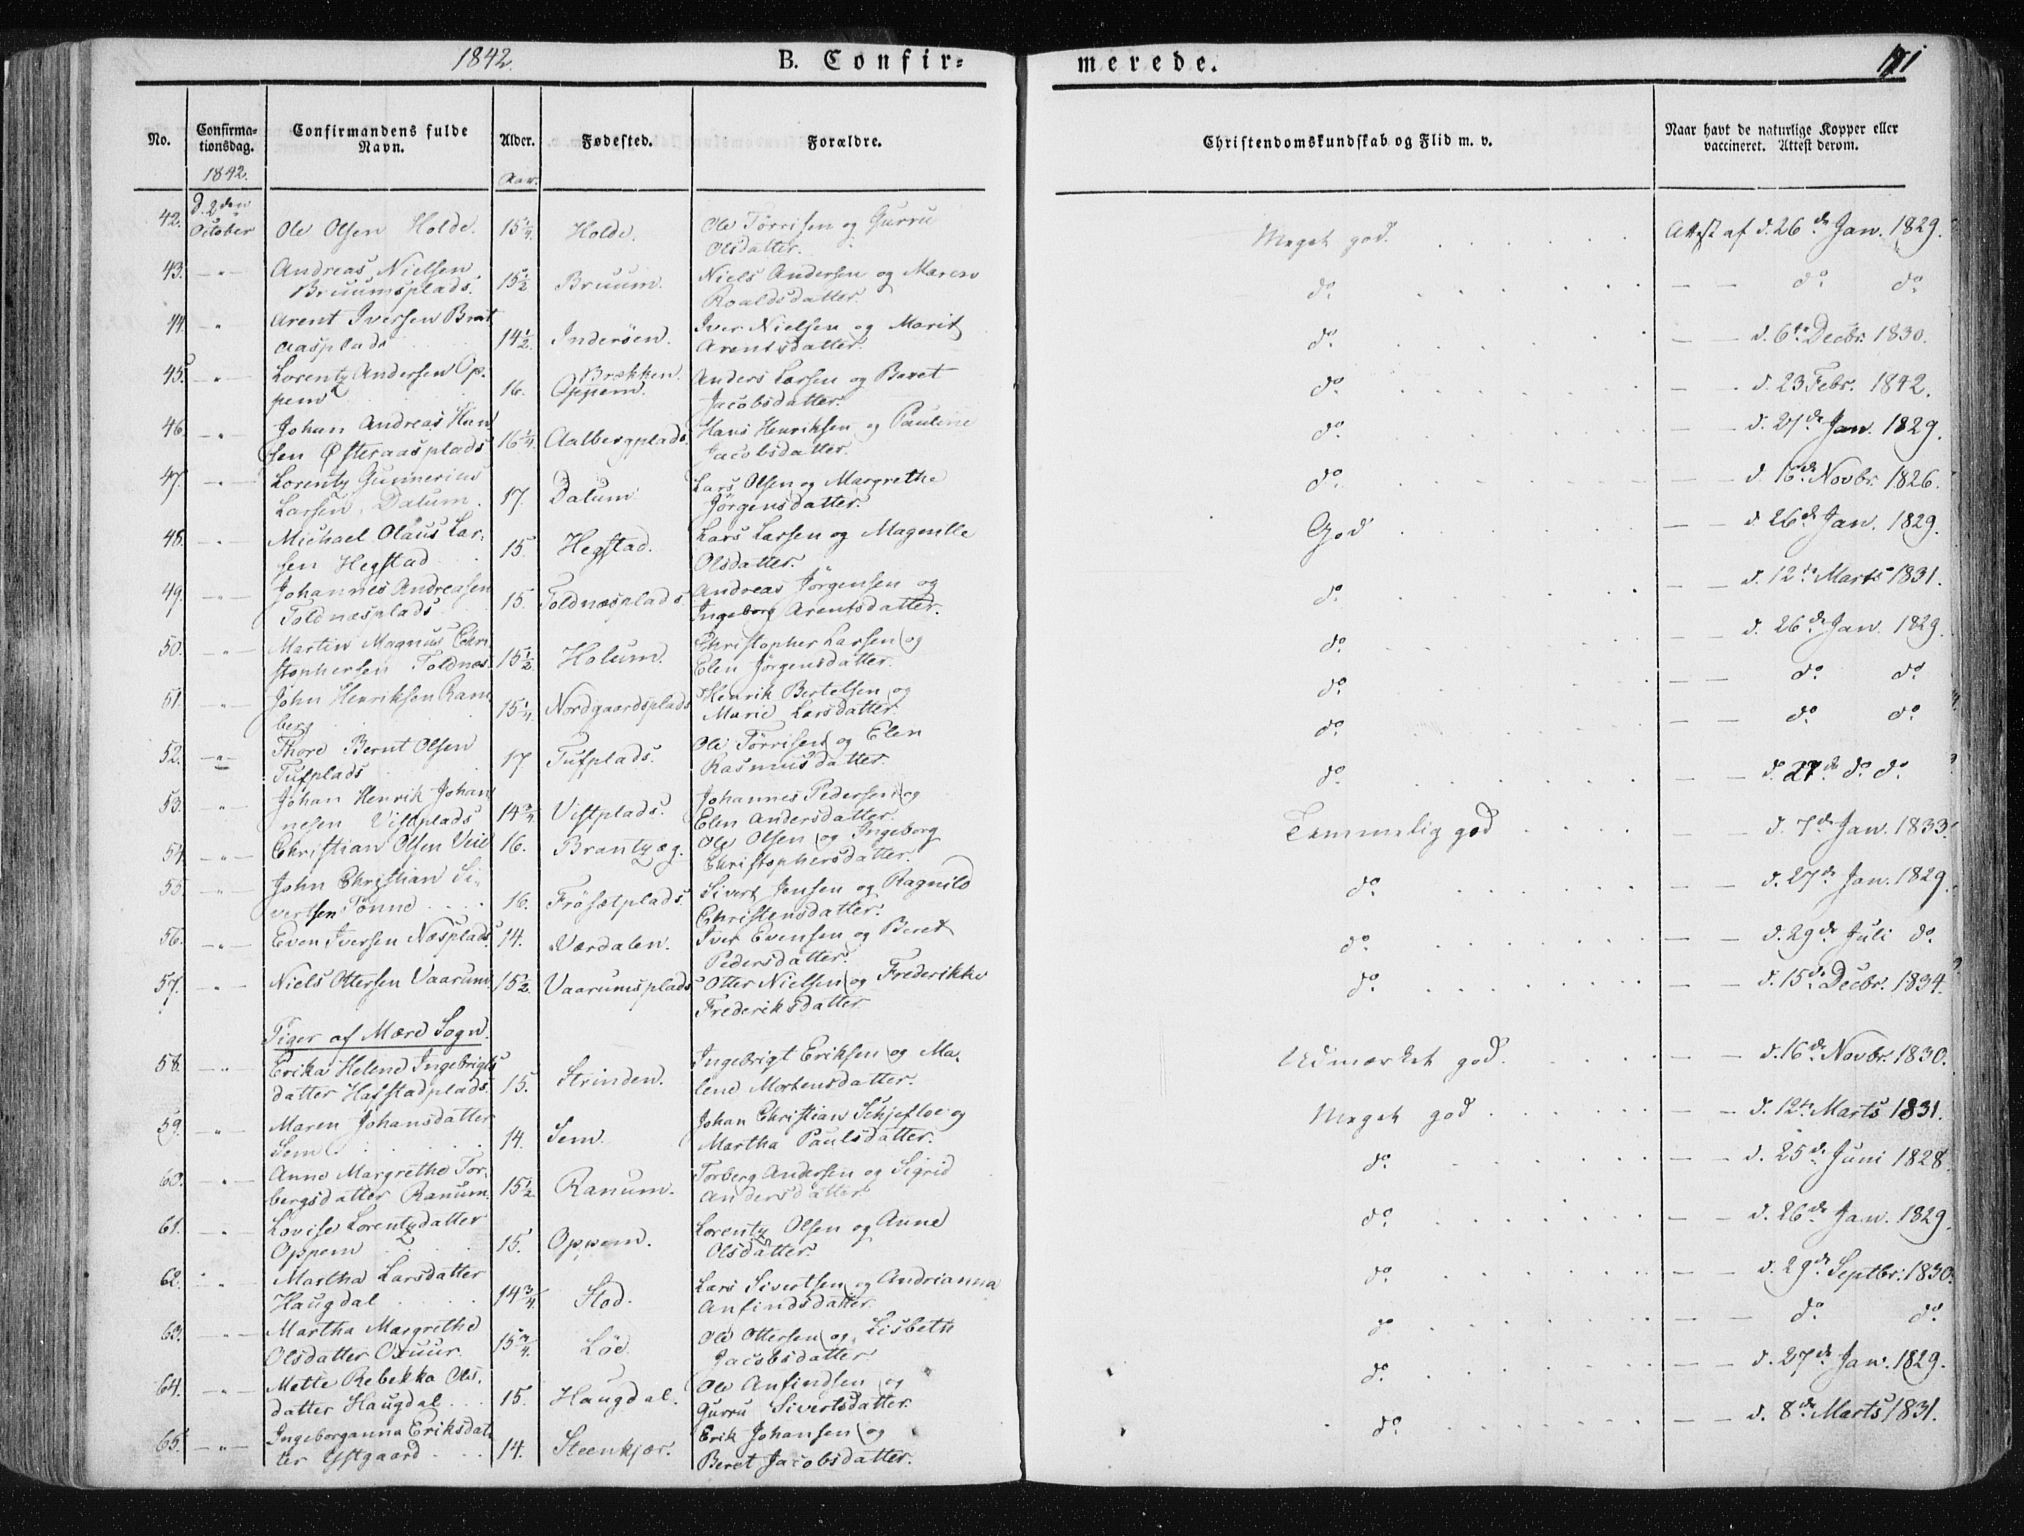 1842.
B. Confir=
merede.
No.
Confirma-
tionsdag.
Confirmandens fulde
Navn.
Alder.
Fødested.
Forældre.
Christendomskundskab og Flid m. v.
Naar havt de naturlige Kopper eller
vaccineret. Attest derom.
1842.
Aar.
42. d. 2den October Ole Olsen Holde. 15¼. Holde. Ole Törrisen og Gurru Olsdatter. Meget god. Attest af d. 26de Jan. 1829.
43. — " — Andreas Nielsen Bruumsplads. 15½ Bruum. Niels Andersen og Maren Roaldsdatter. do. — — do. do.
44. — " Arent Iversen Brataasplads 14½. Inderøen. Iver Nielsen og Marit Arentsdatter. do. — — d. 6te Decbr. 1830.
45. — " — Lorentz Andersen Oppem 16. Brækken. Oppem. Anders Larsen og Beret Jacobsdatter. do. — — d. 23 Febr. 1842.
46. — " — Johan Andreas Hansen Østeraasplads 16¼. Aalbergplads. Hans Henriksen og Pauline Jacobsdatter. do. — — d. 27de Jan. 1829.
47. — " — Lorentz Gunnerius Larsen Dalum. 17. Dalum. Lars Olsen og Margrethe Jörgensdatter. do. — — d. 16de Novbr. 1826.
48. — " — Michael Olaus Larsen Hegstad 15. Hegstad. Lars Larsen og Magnille Olsdatter. God — — d. 26de Jan. 1829.
49. — " — Johannes Andreasen Toldnæsplads 15. Toldnæsplads. Andreas Jörgensen og Ingeborg Arentsdatter. do. — — d. 12te Marts 1831.
50. — " — Martin Magnus Christophersen Toldnæs 15½ Holum. Christopher Larsen og Elen Jörgensdatter. do. — — d. 26de Jan. 1829.
51. — " — John Henriksen Ramberg 15¼. Nordgaardsplads Henrik Bertelsen og Marie Larsdatter. do. — — do. do.
52. — " — Thore Bernt Olsen Tufplads 17 Tufplads. Ole Törrisen og Elen Rasmusdatter. do. — — do. do.
53. — " Johan Henrik Johannesen Vistplads 14¾ Vistplads. Johannes Pedersen og Elen Andersdatter. do. — — d. 27de do. do.
54. — " — Christian Olsen 16. Brantzæg. Ole Olsen og Ingeborg Christophersdatter. Temmelig god — — d. 7de Jan. 1833.
55. — " John Christian Sivertsen Tönne 16. Frösetplads. Sivert Jensen og Ragnild Christensdatter. do. — — d. 27de Jan. 1829.
56. — " — Even Iversen Næsplads 14. Værdalen. Iver Evensen og Beret Pedersdatter. do. — — d. 29de Juli do.
57. — " — Niels Ottersen Vaarum 15½. Vaarumsplads Otter Nielsen og Frederikke Frederiksdatter do. — — d. 15de Decbr. 1834.
Piger af Mære Sogn.
58. — " Erika Helene Ingebrigtsdatter Hafstadplads. 15. Strinden. Ingebrigt Eriksen og Malene Mortensdatter. Udmærket god. — — d. 16de Novbr. 1830.
59. — " Maren Johansdatter Sem 14. Sem. Johan Christian Schjefloe og Martha Paulsdatter. Meget god — — d. 12te Marts 1831.
60. — " — Anne Margrethe Torbergsdatter Ranum. 15½ Ranum. Torberg Andersen og Sigrid Andersdatter do. — — d. 25de Juni 1828.
61. — " — Lovise Lorentzdatter Oppem 15. Oppem. Lorentz Olsen og Anne Olsdatter. do. — — d. 26de Jan. 1829.
62. " Martha Larsdatter Haugdal 14¾ Stod. Lars Sivertsen og Andrianna Anfindsdatter. do. — — d. 29de Septbr. 1830.
63. — " — Martha Margrethe Olsdatter 15¾. Löe. Ole Ottersen og Lisbeth Jacobsdatter. do. do. do.
64. — " — Mette Rebekka Olsdatter Haugdal 15. Haugdal. Ole Anfindsen og Gurru Sivertsdatter. do. — — d. 27de Jan. 1829.
65. — " — Ingeborganna Eriksdatter Ystgaard 14. Steenkjær. Erik Johansen og Beret Jacobsdatter. do. — — d. 8de Marts 1831.